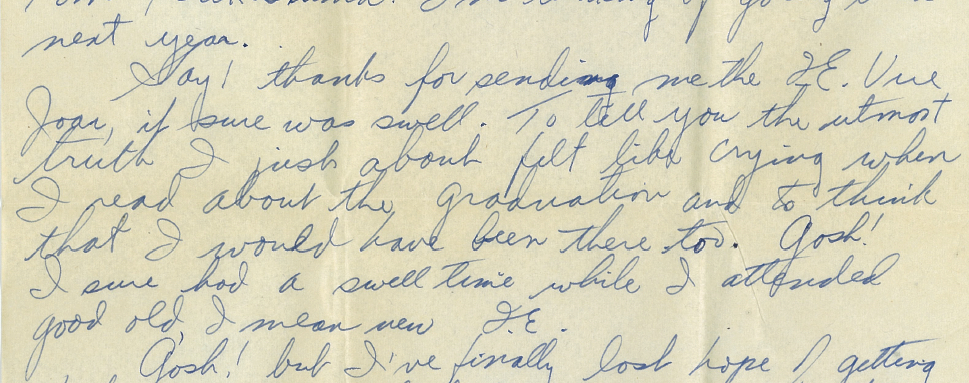 next year.
Say! thanks for sending me the F.E. Vue
Joan, it sure was swell. To tell you the utmost
truth I just about felt like crying when
I read about the graduation and to think
that I would have been there too. Gosh!
I sure had a swell time while I attended
good old, I mean new F.E.
Gosh! but I've finally lost hope of getting